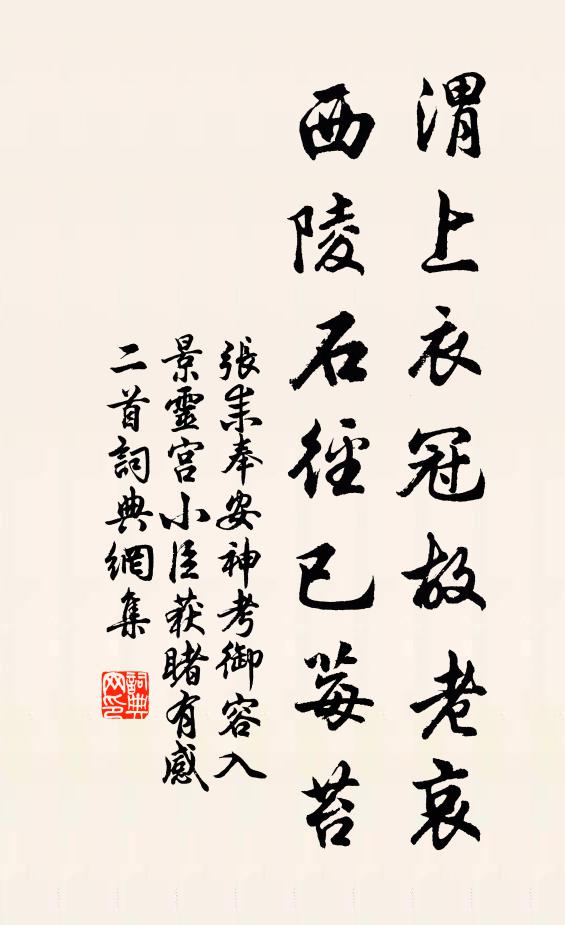 渭上衣冠故老哀
西陵石徑已莓苔
張耒奉安神考御容入
景靈宮小臣获睹有感
二首詞典網集
詞典网印